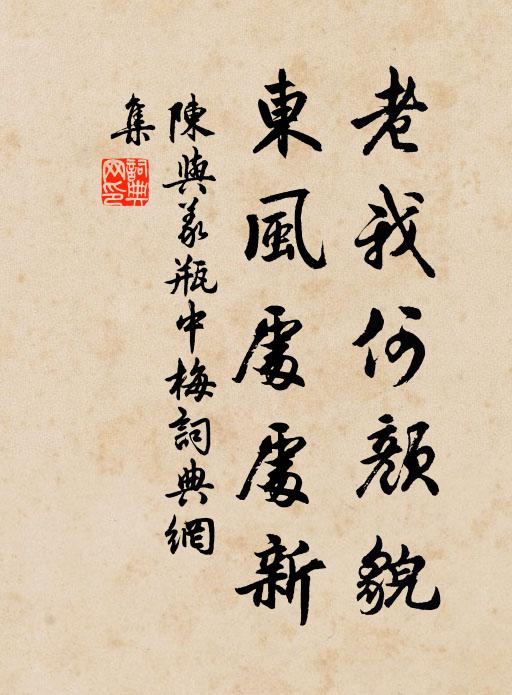 老我何顏貌
東風處處新
陳與義瓶中梅詞典網
集
詞典
网印